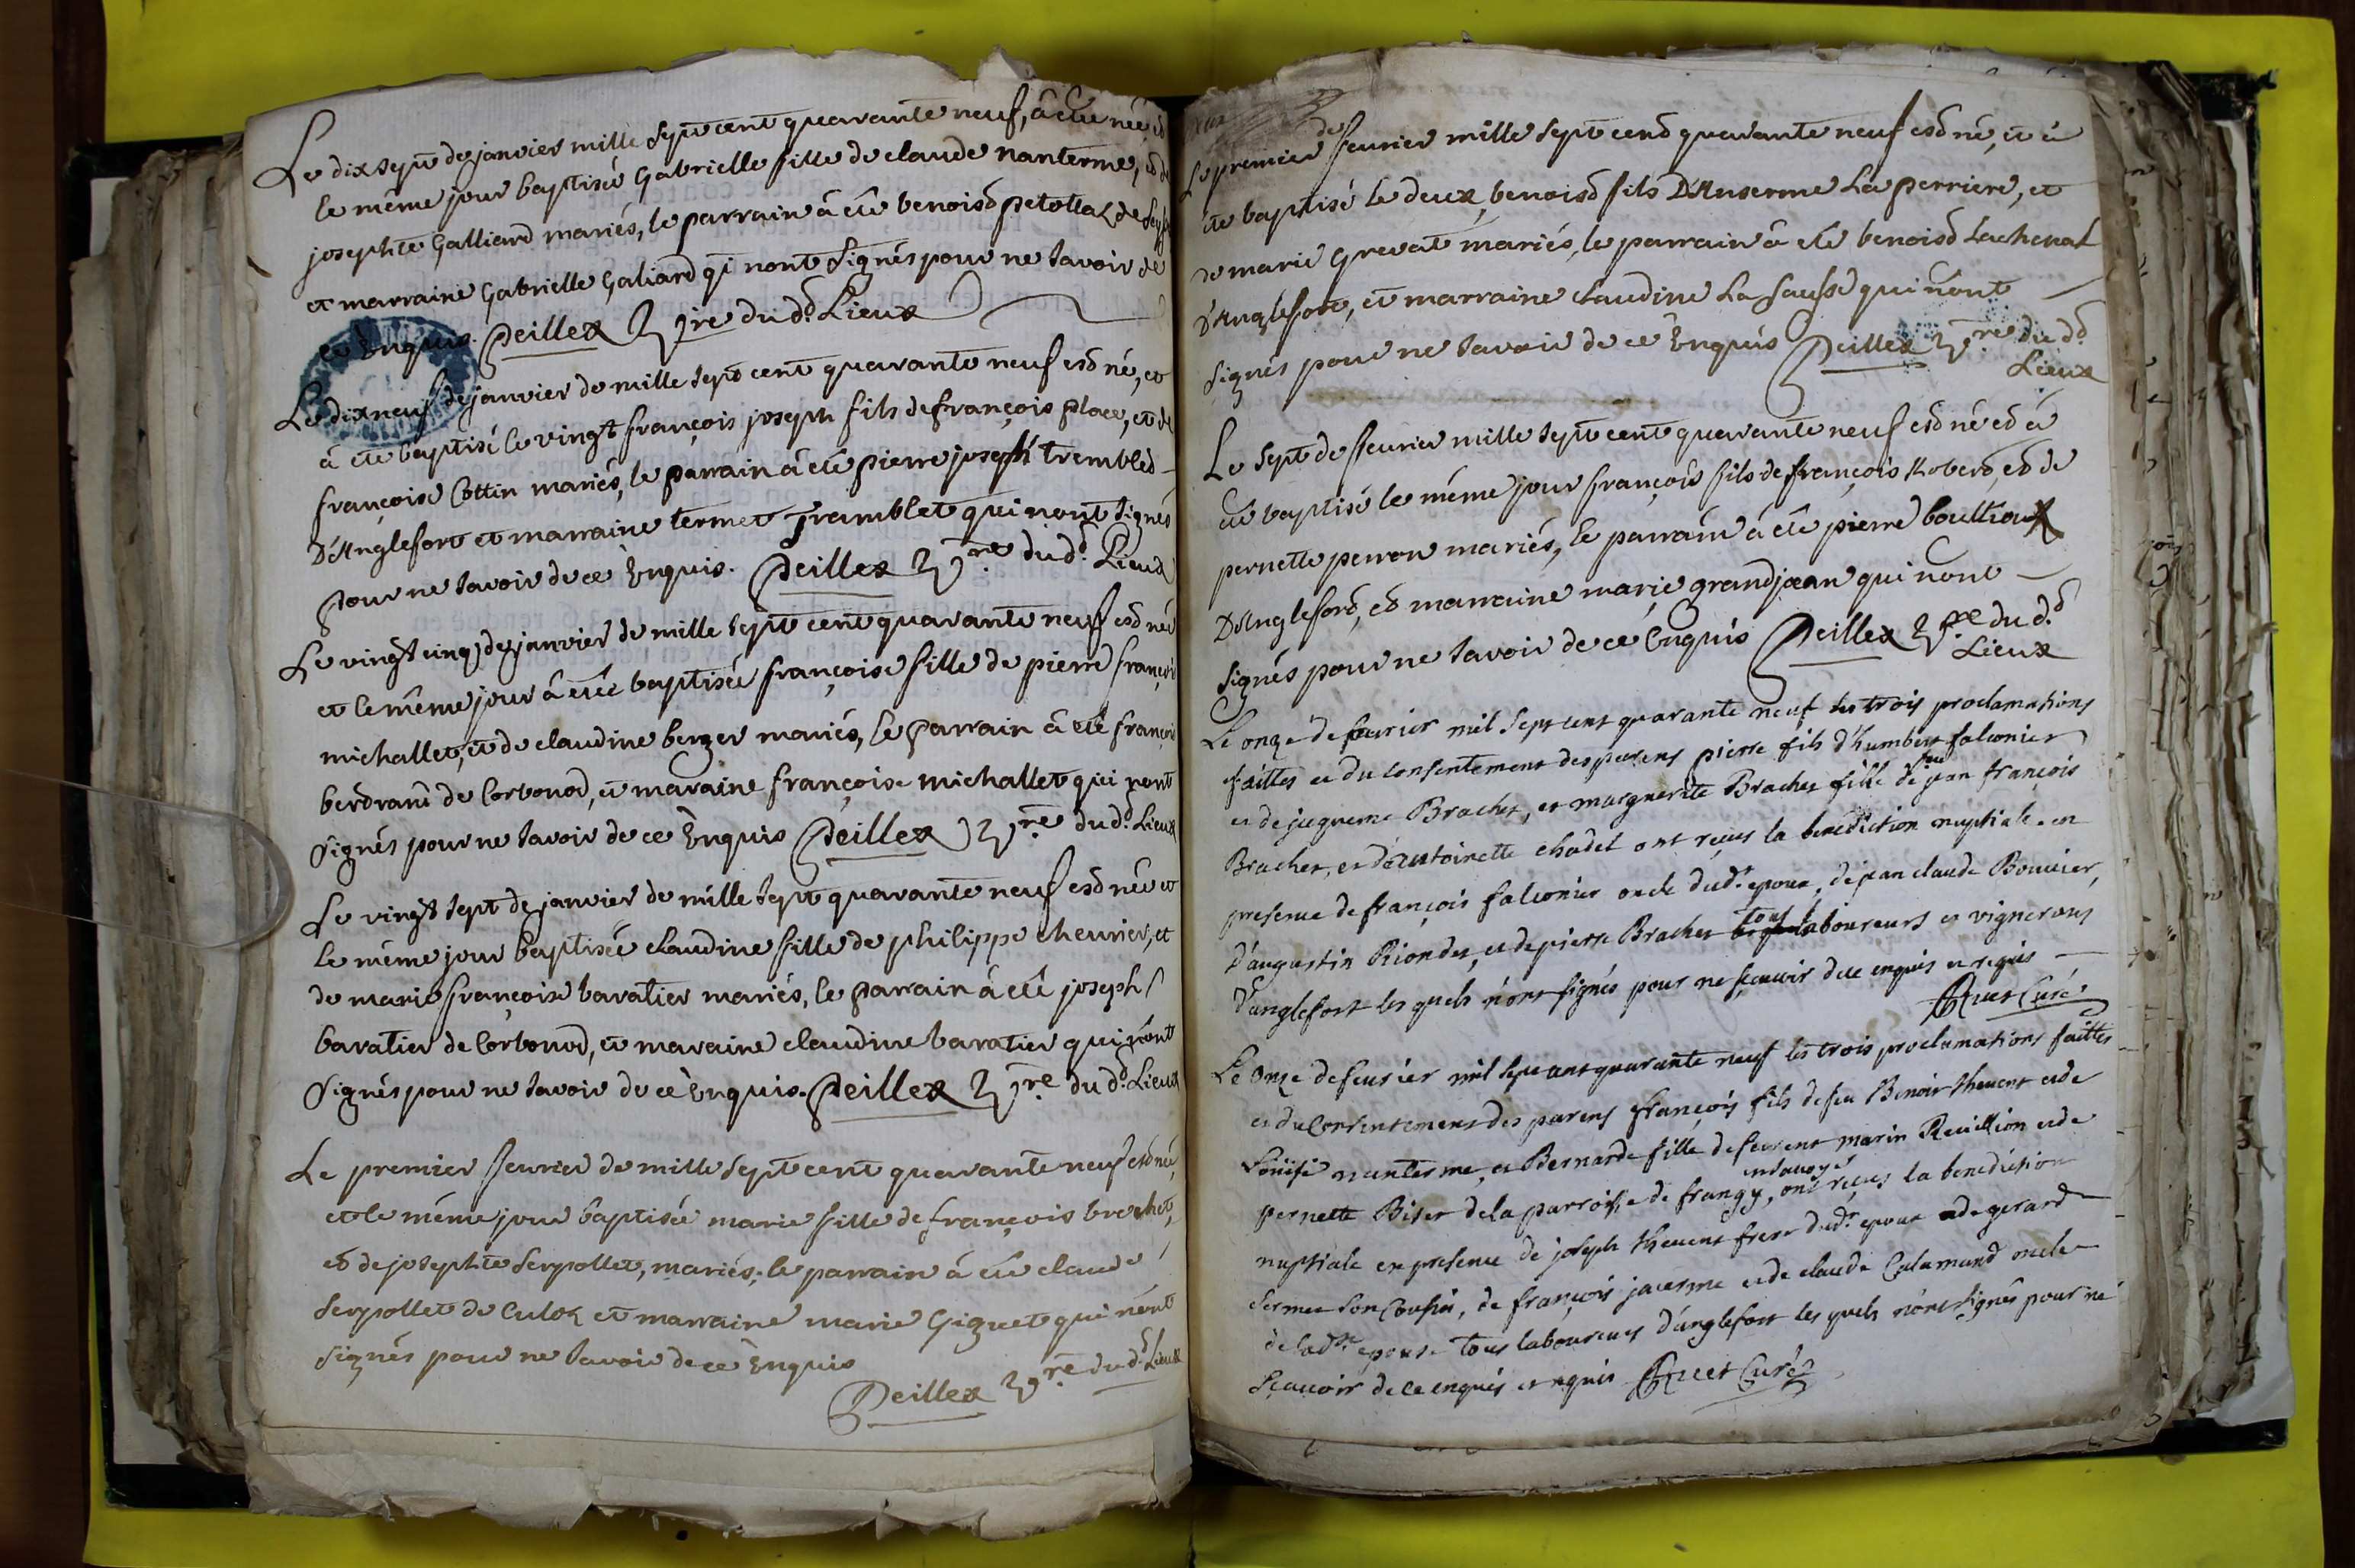 Le dix sept de janvier mille sept cent quarante neuf, â êté née et
le même jour baptisée Gabrielle fille de claude nanterme, et de
josephte Galliard mariés, le parrain â êté benoist petollaz de
et marraine Gabrielle Galiard qi n'ont signés pour ne savoir de
ce Enquis. Peillex Vre du dt Lieux
Le dix neuf de janvier de mille sept cent quarante neuf est né, et
â êté baptisé le vingt françois joseph fils de françois place, et de
françoise Cottin mariés, le parrain â êté pierre joseph tremblet
D'Anglefort et marraine termet Tramblet qui n'ont signés
pour ne savoir de ce Enquis. Peillex Vre du dt Lieux
Le vingt cinq de janvier de mille sept cent quarante neuf est née
et le même jour â êtée baptisée françoise fille de pierre françois
michallet, et de claudine berger mariés, le parrain â êté françois
berdrand de Corbonod, et maraine françoise michallet qui n'ont
signés pour ne savoir de ce Enquis Peillex Vre du dt Lieux
Le vingt sept de janvier de mille sept quarante neuf est née et
le même jour baptisée claudine fille de philippe chevrier, et
de marie françoise baratier mariés, le parrain â êté joseph
baratier de Corbonod, et maraine claudine baratier qui n'ont
signés pour ne savoir de ce Enquis. Peillex Vre du dt Lieux
Le premier fevrier de mille sept cent quarante neuf est née,
et le même jour baptisée marie fille de françois brochet,
et de josephte Serpollet, mariés; le parrain â êté claude
Serpollet de Culoz et marraine marie Giguet qui n'ont
signés pour ne savoir de ce Enquis
Peillex Vre du dt Lieux
Le premier de fevrier mille sept cend quarante neuf est né, et â
êté baptisé le deux, benoist fils D'Anserme La perriere, et
de marie Grevat mariés, le parrain â êté benoist Lachenal
D'Anglefort, et marraine claudine La Sausse qui n'ont
signés pour ne savoir de ce Enquis Peillex Vre du dt
Lieux
Le sept de fevrier mille sept cent quarante neuf est né et â
êté baptisé le même jour françois fils de françois Roberd, et de
pernette perron mariés, le parrain â êté pierre boullioux
D'Angleford, et marraine marie grandjean qui n'ont
signés pour ne savoir de ce Enquis Peillex Vre du dt
Lieux
Le onze de fevrier mil sept cent quarante neuf les trois proclamations
faittes et du consentement des parens pierre fils d'humbert falconier
et de jaqueme Brachet, et marguerite Brachet fille de feu jean françois
Brachet, et d'antoinette chadel ont reçus la benediction nuptiale en
presence de françois falconier oncle dudt epoux, de jean claude Bouvier,
d'augustin Riondet, et de pierre Brachet tous laboureurs et vignerons
d'anglefort les quels n'ont signés pour ne sçavoir de ce enquis et requis
Ruet Curé
Le onze de fevrier mil sept cent quarante neuf les trois proclamations faittes
et du consentement des parens françois fils de feu Benoit thevent et de
Loüise nanterme, et Bernarde fille de marin Reuillion et de
pernette Biset de la parroisse de frangy, ont reçus la benediction
nuptiale en presence de joseph thevent frere dudt epoux et de gerard
termet son Cousin, de françois jacerme et de claude Calamand oncle
de ladte epouse tous laboureurs d'anglefort les quels n'ont signés pour ne
sçavoir de ce enquis et requis Ruet Curé